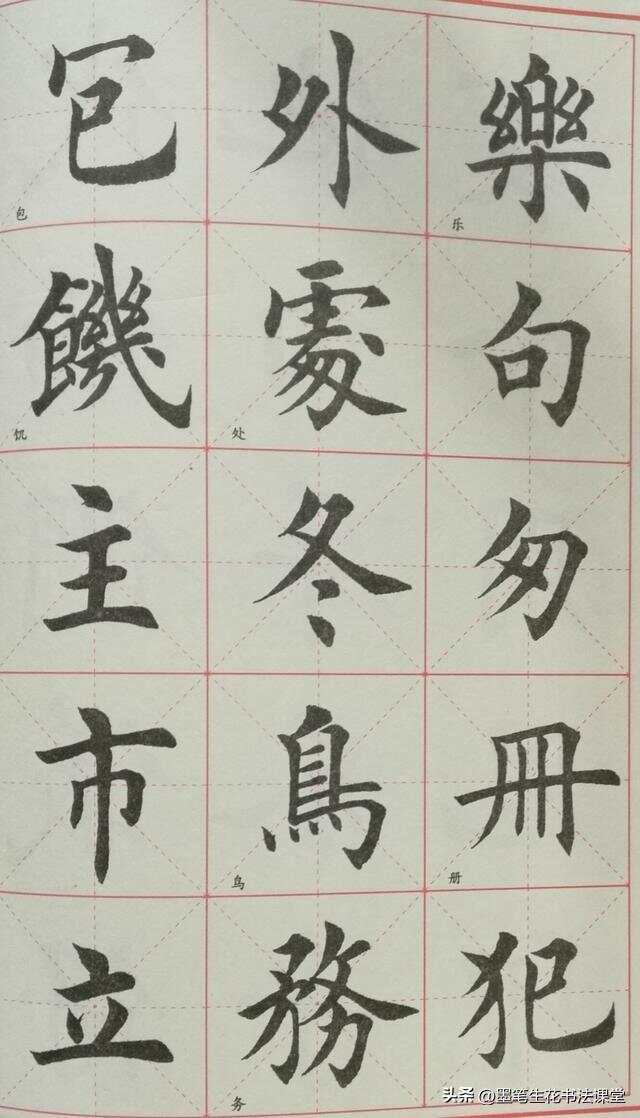 樂 乐 句 匆 冊 册 犯
外 處 处 冬 鳥 鸟 務 务
包 包 饑 饥 主 市 立
头条 @墨笔生花书法课堂